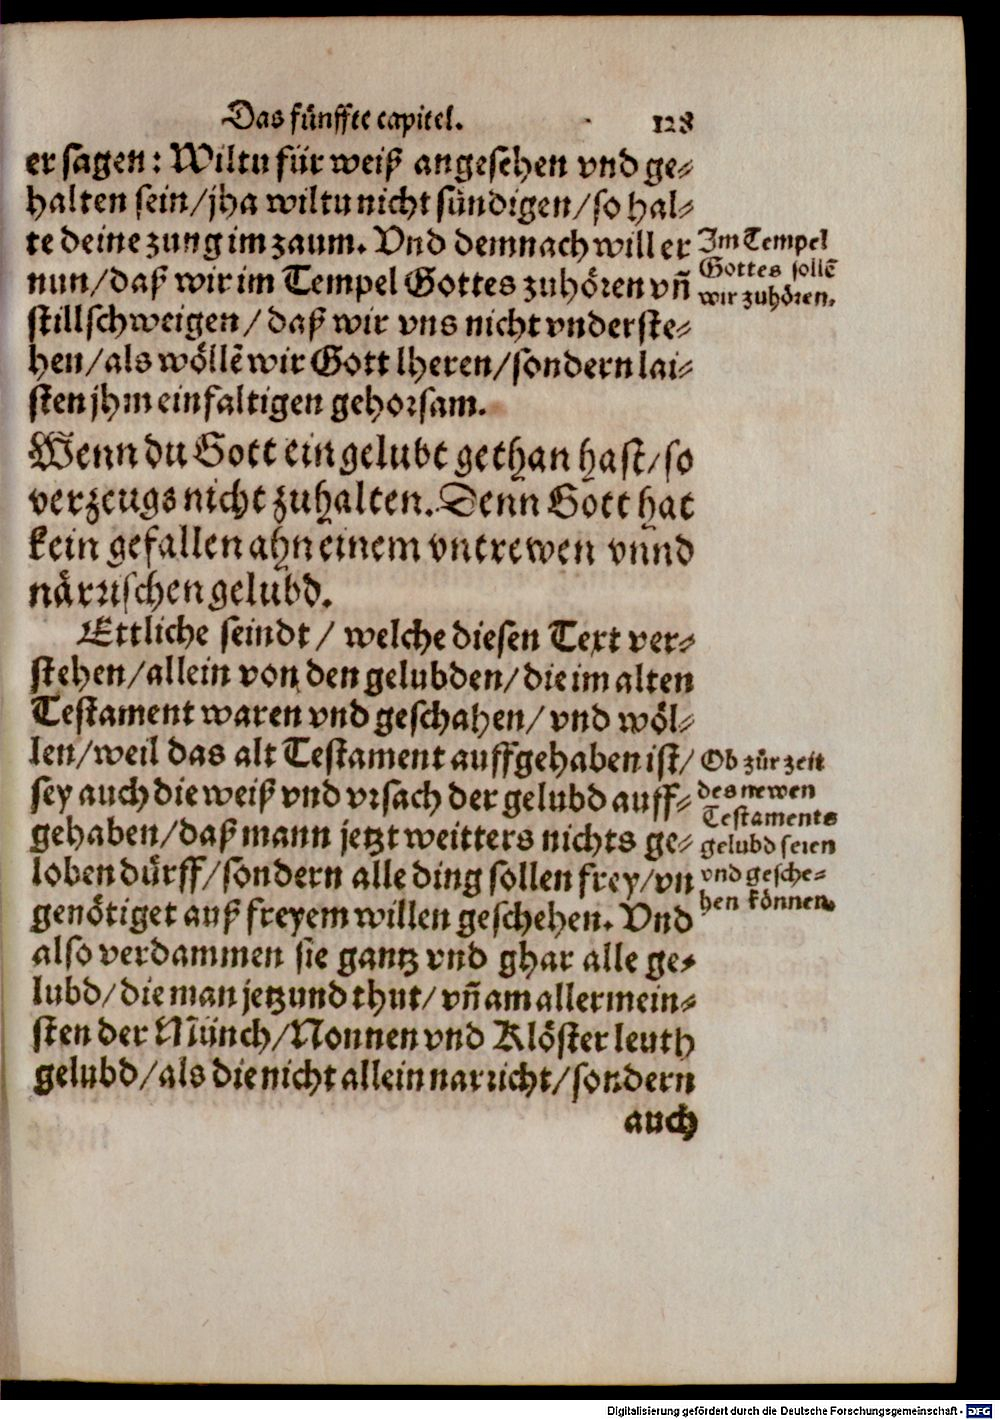 Das fünffte capitel. 128
er sagen: Wiltu für weiß angesehen vnd ge⸗
halten sein/jha wiltu nicht sündigen/so hal⸗
te deine zung im zaum. Vnd demnach will er
nun/daß wir im Tempel Gottes zuhören vñ
stillschweigen/daß wir vns nicht vnderste⸗
hen/als wöllē wir Gott lheren/sondern lai⸗
sten jhm einfaltigen gehorsam.
Im Tempel
Gottes sollē
wir zuhören.
Wenn du Gott ein gelubt gethan hast/so
verzeugs nicht zuhalten. Denn Gott hat
kein gefallen ahn einem vntrewen vnnd
närrischen gelubd.
Ettliche seindt/ welche diesen Text ver⸗
stehen/allein von den gelubden/die im alten
Testament waren vnd geschahen/ vnd wöl⸗
len/weil das alt Testament auffgehaben ist/
sey auch die weiß vnd vrsach der gelubd auff⸗
gehaben/daß mann jetzt weitters nichts ge⸗
loben dürff/sondern alle ding sollen frey/vn
genötiget auß freyem willen geschehen. Vnd
also verdammen sie gantz vnd ghar alle ge⸗
lubd/die man jetzund thut/ vñ am allermein⸗
sten der Münch/Nonnen vnd Klöster leuth
gelubd/als die nicht allein narricht/sondern
auch
Ob zür zeit
des newen
Testaments
gelubd seien
vnd gesche⸗
hen können.
Digitalisierung gefördert durch die Deutsche Forschungsgemeinschaft - DFG